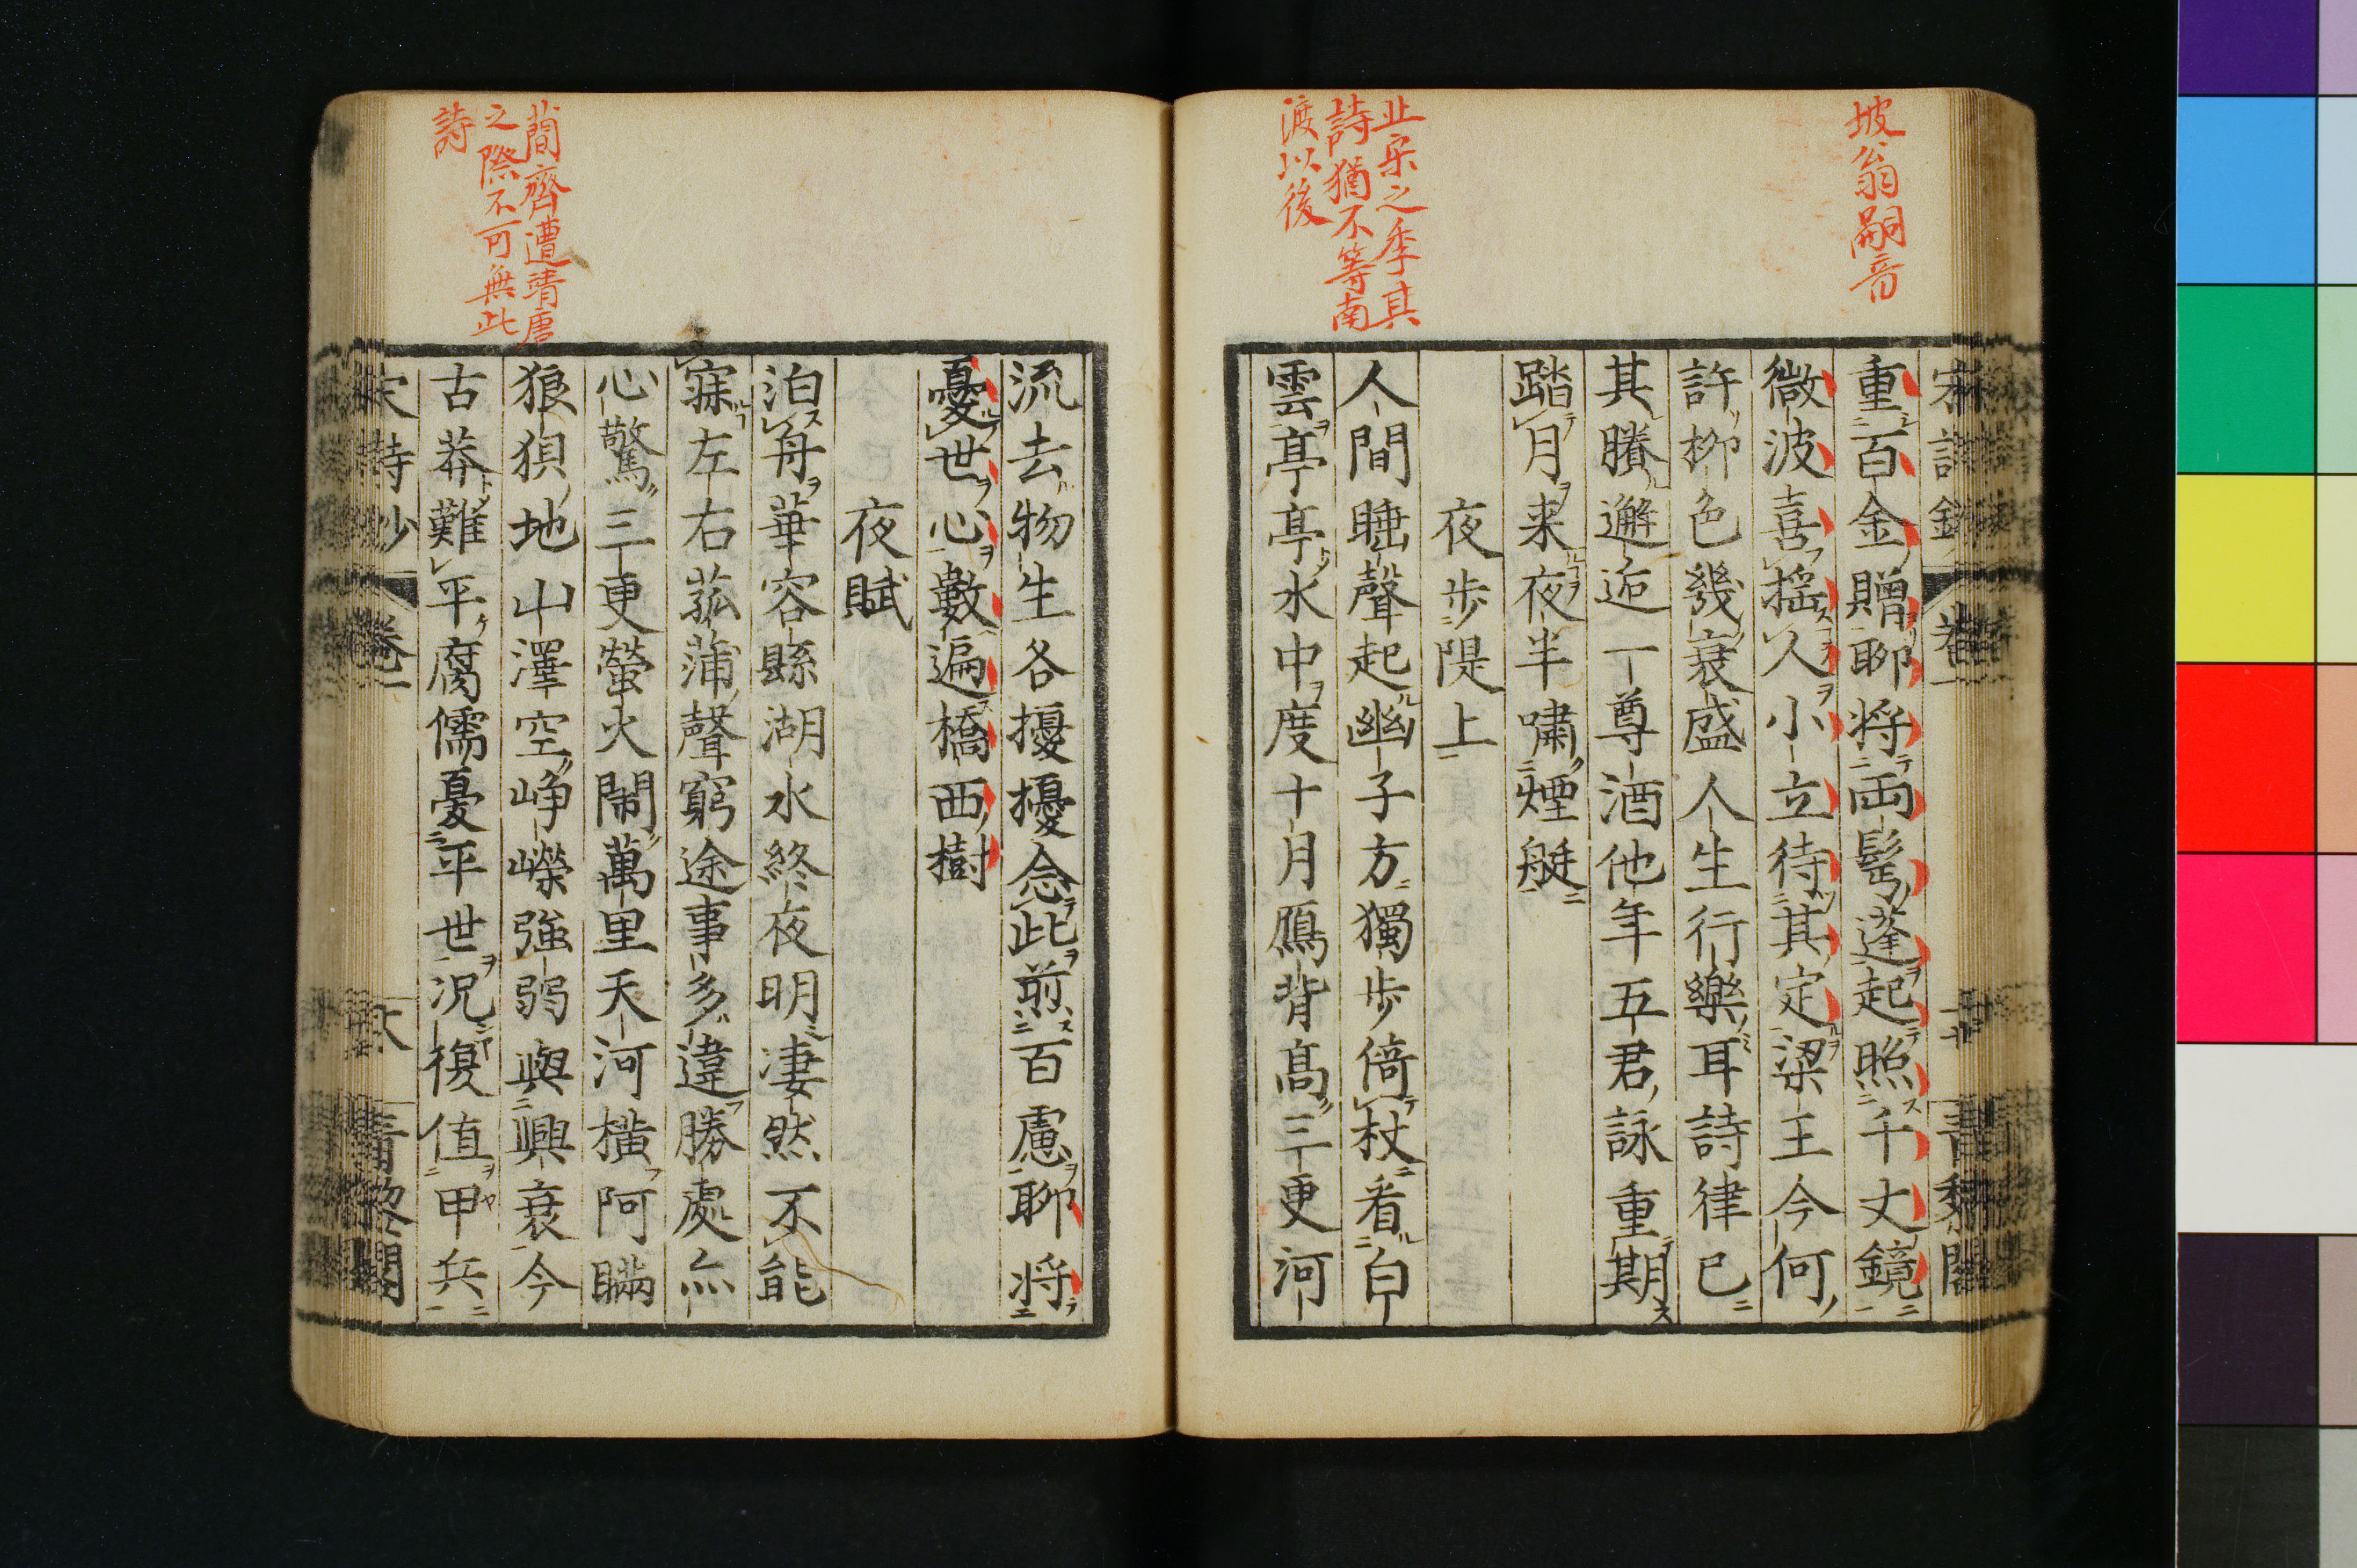 坡翁嗣音
重百金贈聊将両髩蓬起照千丈鏡
微波喜揺人小立待其定梁王今何
許柳色幾衰盛人生行樂耳詩律已
其賸邂逅一尊酒他年五君詠重期
踏月来夜半嘯煙艇
夜歩隄上
人間睡聲起幽子方獨歩倚杖看白
雲亭亭水中度十月鴈背髙三更河
北宋之季其
詩猶不等南
渡以後
流去物生各擾擾念此煎百慮聊将
憂世心數遍橋西樹
夜賦
泊舟華容縣湖水終夜明凄然不能
寐左右菰蒲聲窮途事多違勝處亦
心驚三更螢火閙萬里天河橫阿瞞
狼狽地山澤空崢嶸強弱與興衰今
古莽難平腐儒憂平世況復值甲兵
簡齊遭靖唐
之際不可無此
詩
宋詩鈔 卷一 青黎閣